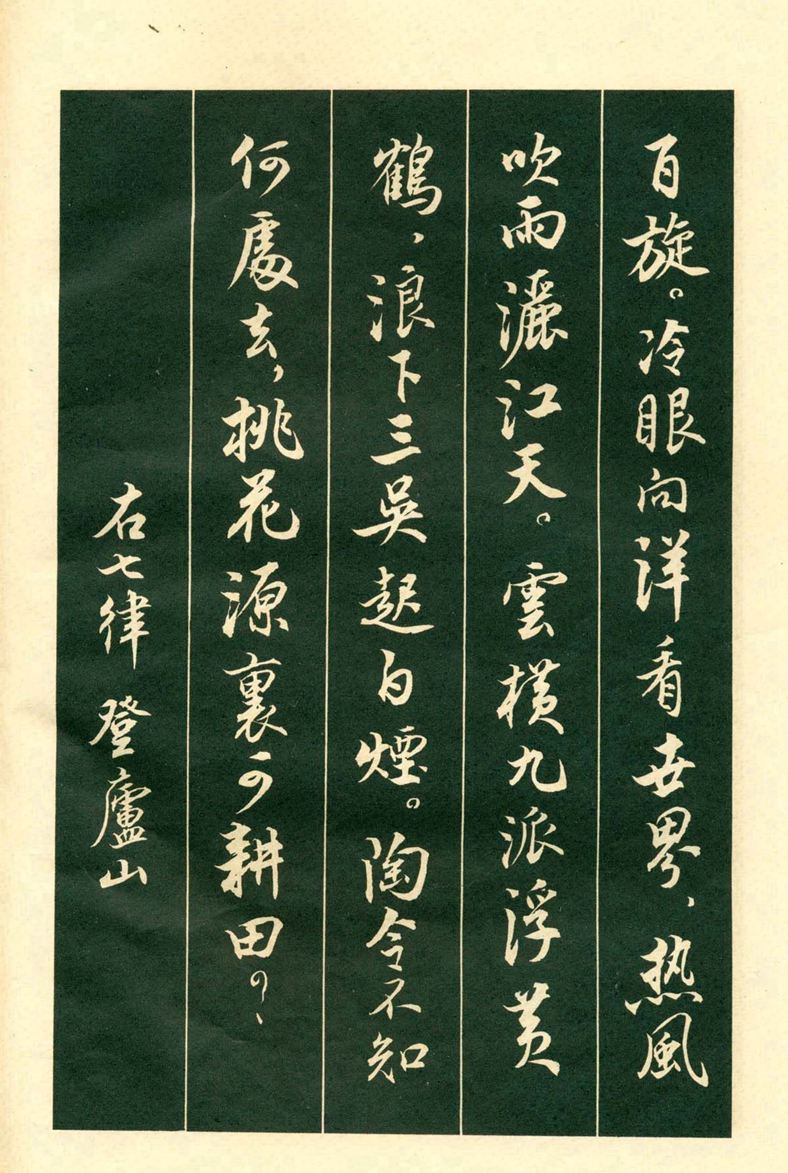 百旋。冷眼向洋看世界、热風
吹雨灑江天。雲横九派浮黄
鶴、浪下三吳起白煙。陶令不知
何處去,桃花源裏可耕田?
右七律 登廬山